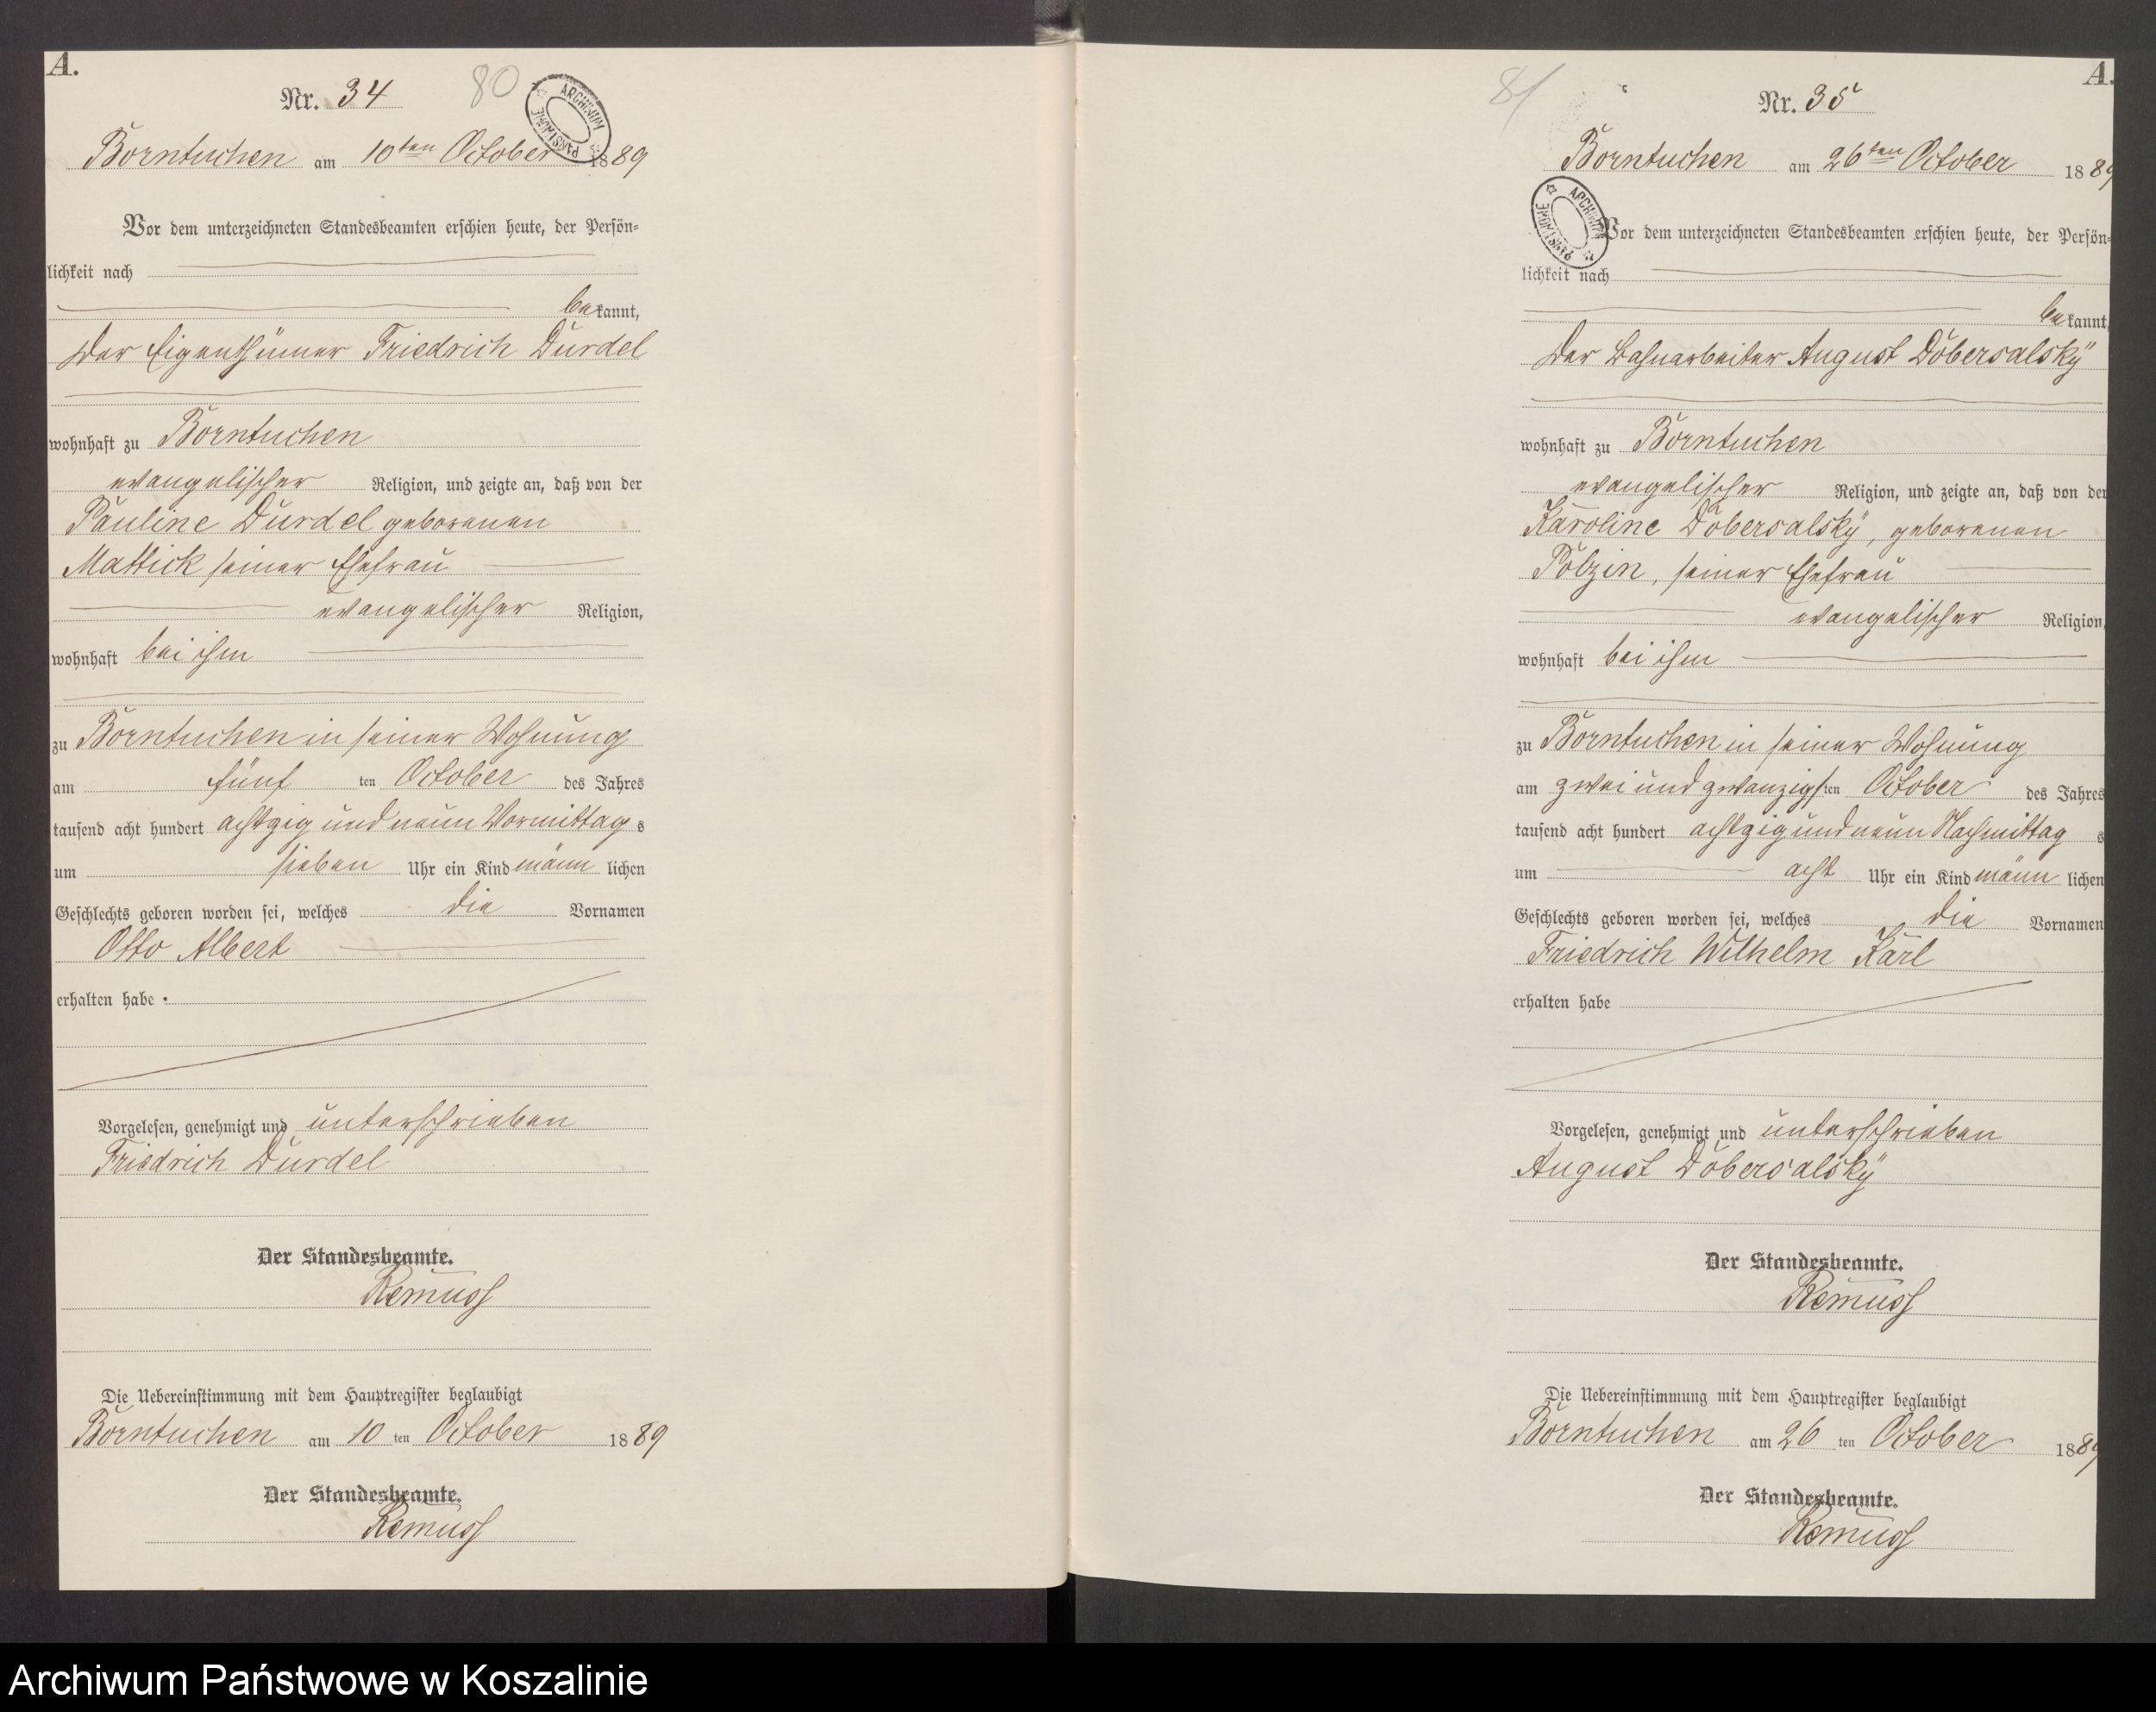 A.
Nr. 34
80
ARCHIWUM PAŃSTWOWE
Borntuchen am 10ten October 1889
Vor dem unterzeichneten Standesbeamten erschien heute, der Persön-
lichkeit nach
bekannt,
der Eigenthümer Friedrich Durdel
wohnhaft zu Borntuchen
evangelischer Religion, und zeigte an, daß von der
Pauline Durdel geborenen
Mattick seiner Ehefrau
evangelischer Religion,
wohnhaft bei ihm
zu Borntuchen in seiner Wohnung
am fünf ten October des Jahres
tausend acht hundert achtzig und neun Vormittags
um sieben Uhr ein Kind männlichen
Geschlechts geboren worden sei, welches die Vornamen
Otto Albert
erhalten habe.
Vorgelesen, genehmigt und unterschrieben
Friedrich Durdel
Der Standesbeamte.
Remuss
Die Uebereinstimmung mit dem Hauptregister beglaubigt
Borntuchen am 10 ten October 1889
Der Standesbeamte.
Remuss
A.
81
Nr. 35
Borntuchen am 26ten October 1889
ARCHIWUM PAŃSTWOWE
Vor dem unterzeichneten Standesbeamten erschien heute, der Persön-
lichkeit nach
bekannt,
der Bahnarbeiter August Dobersalsky
wohnhaft zu Borntuchen
evangelischer Religion, und zeigte an, daß von der
Karoline Dobersalsky, geborenen
Polzin, seiner Ehefrau
evangelischer Religion,
wohnhaft bei ihm
zu Borntuchen in seiner Wohnung
am zwei und zwanzigsten October des Jahres
tausend acht hundert achtzig und neun Nachmittags
um acht Uhr ein Kind männlichen
Geschlechts geboren worden sei, welches die Vornamen
Friedrich Wilhelm Karl
erhalten habe
Vorgelesen, genehmigt und unterschrieben
August Dobersalsky
Der Standesbeamte.
Remuss
Die Uebereinstimmung mit dem Hauptregister beglaubigt
Borntuchen am 26 ten October 1889
Der Standesbeamte.
Remuss
Archiwum Państwowe w Koszalinie